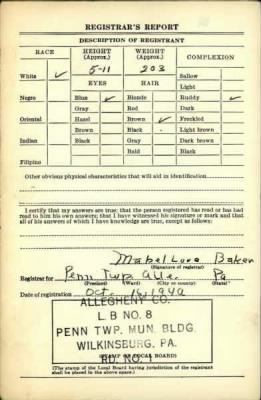 REGISTRAR'S REPORT
DESCRIPTION OF REGISTRANT
RACE HEIGHT (Approx.) WEIGHT (Approx.) COMPLEXION
White ✓ 5-11 203 Sallow
EYES HAIR Light
Negro Blue ✓ Blonde Ruddy ✓
Gray Red Dark
Oriental Hazel Brown ✓ Freckled
Brown Black Light brown
Indian Black Gray Dark brown
Bald Black
Filipino
Other obvious physical characteristics that will aid in identification
I certify that my answers are true; that the person registered has read or has had
read to him his own answers; that I have witnessed his signature or mark and that
all of his answers of which I have knowledge are true, except as follows:
Mabel Baker
(Signature of registrar)
Registrar for Penn Twp. Alle. Pa
(Precinct) (Ward) (City or county) (State)
Date of registration Oct. 16, 1940
ALLEGHENY CO.
L B NO. 8
PENN TWP. MUN. BLDG.
WILKINSBURG, PA.
RD. NO. 1
(STAMP OF LOCAL BOARD)
(The stamp of the Local Board having jurisdiction of the registrant
shall be placed in the above space.)